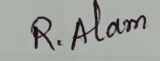 R. Alam